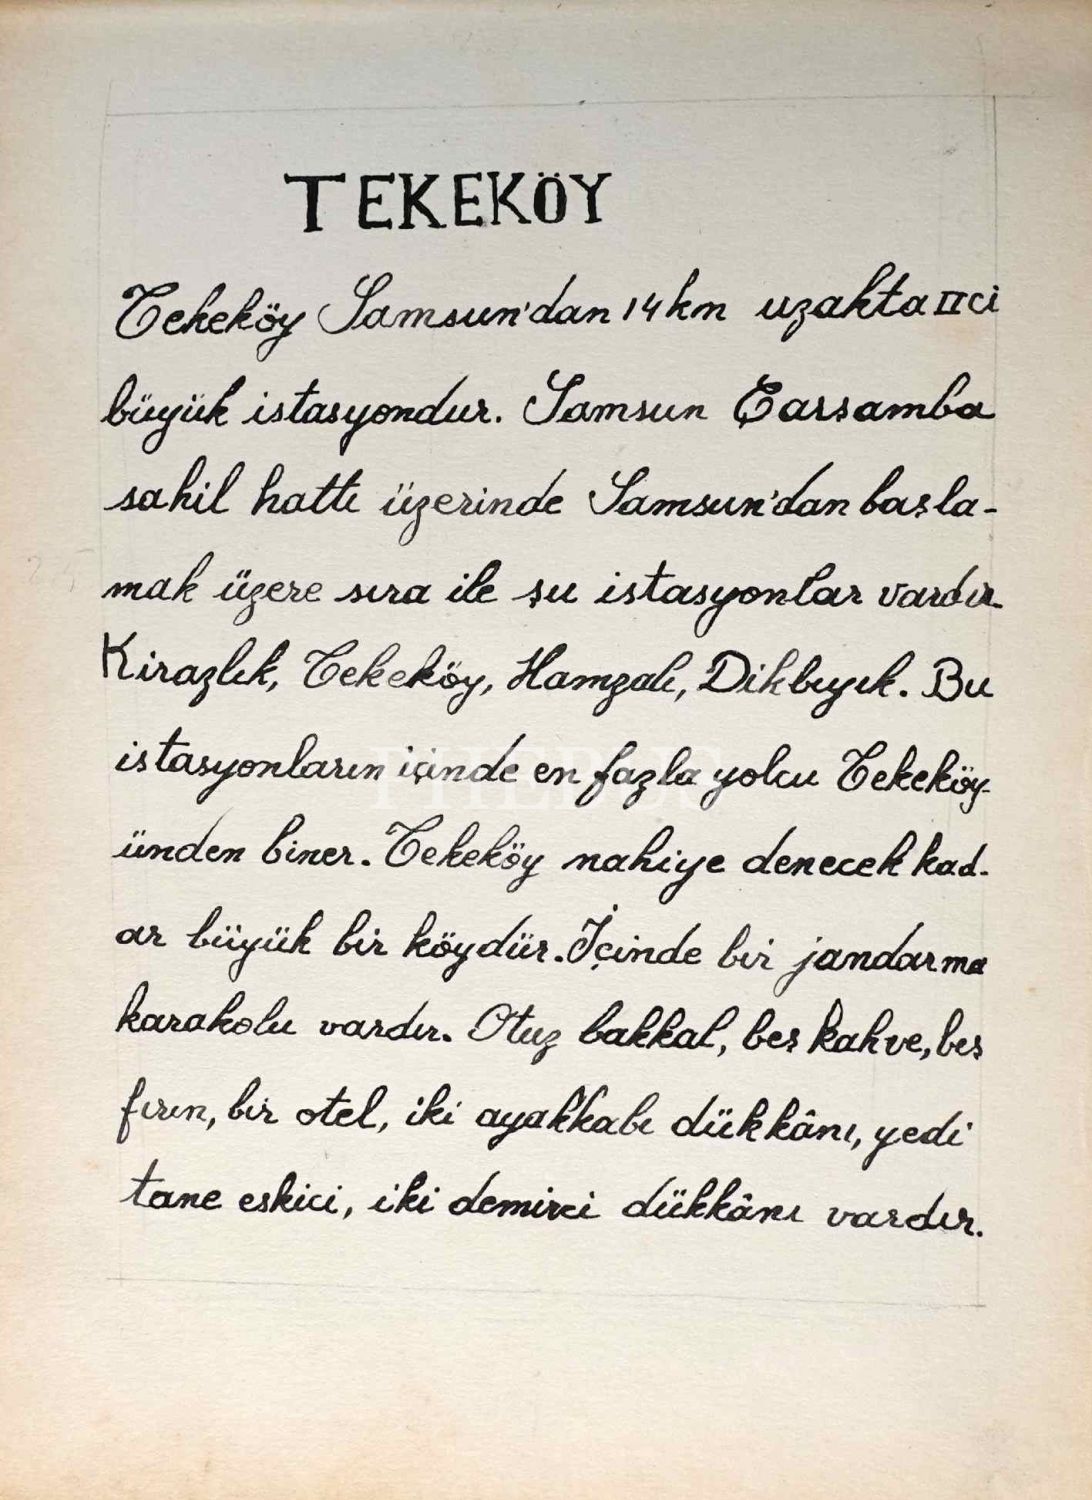 TEKEKÖY
Tekeköy Samsun'dan 14 km uzakta IIci
büyük istasyondur. Samsun Çarşamba
sahil hattı üzerinde Samsun'dan başla-
mak üzere sıra ile şu istasyonlar vardır.
Kirazlık, Tekeköy, Hamzalı, Dikbıyık. Bu
istasyonların içinde en fazla yolcu Tekeköy-
ünden biner. Tekeköy nahiye denecek kad-
ar büyük bir köydür. İçinde bir jandarma
karakolu vardır. Otuz bakkal, beş kahve, beş
fırın, bir otel, iki ayakkabı dükkânı, yedi
tane eskici, iki demirci dükkânı vardır.